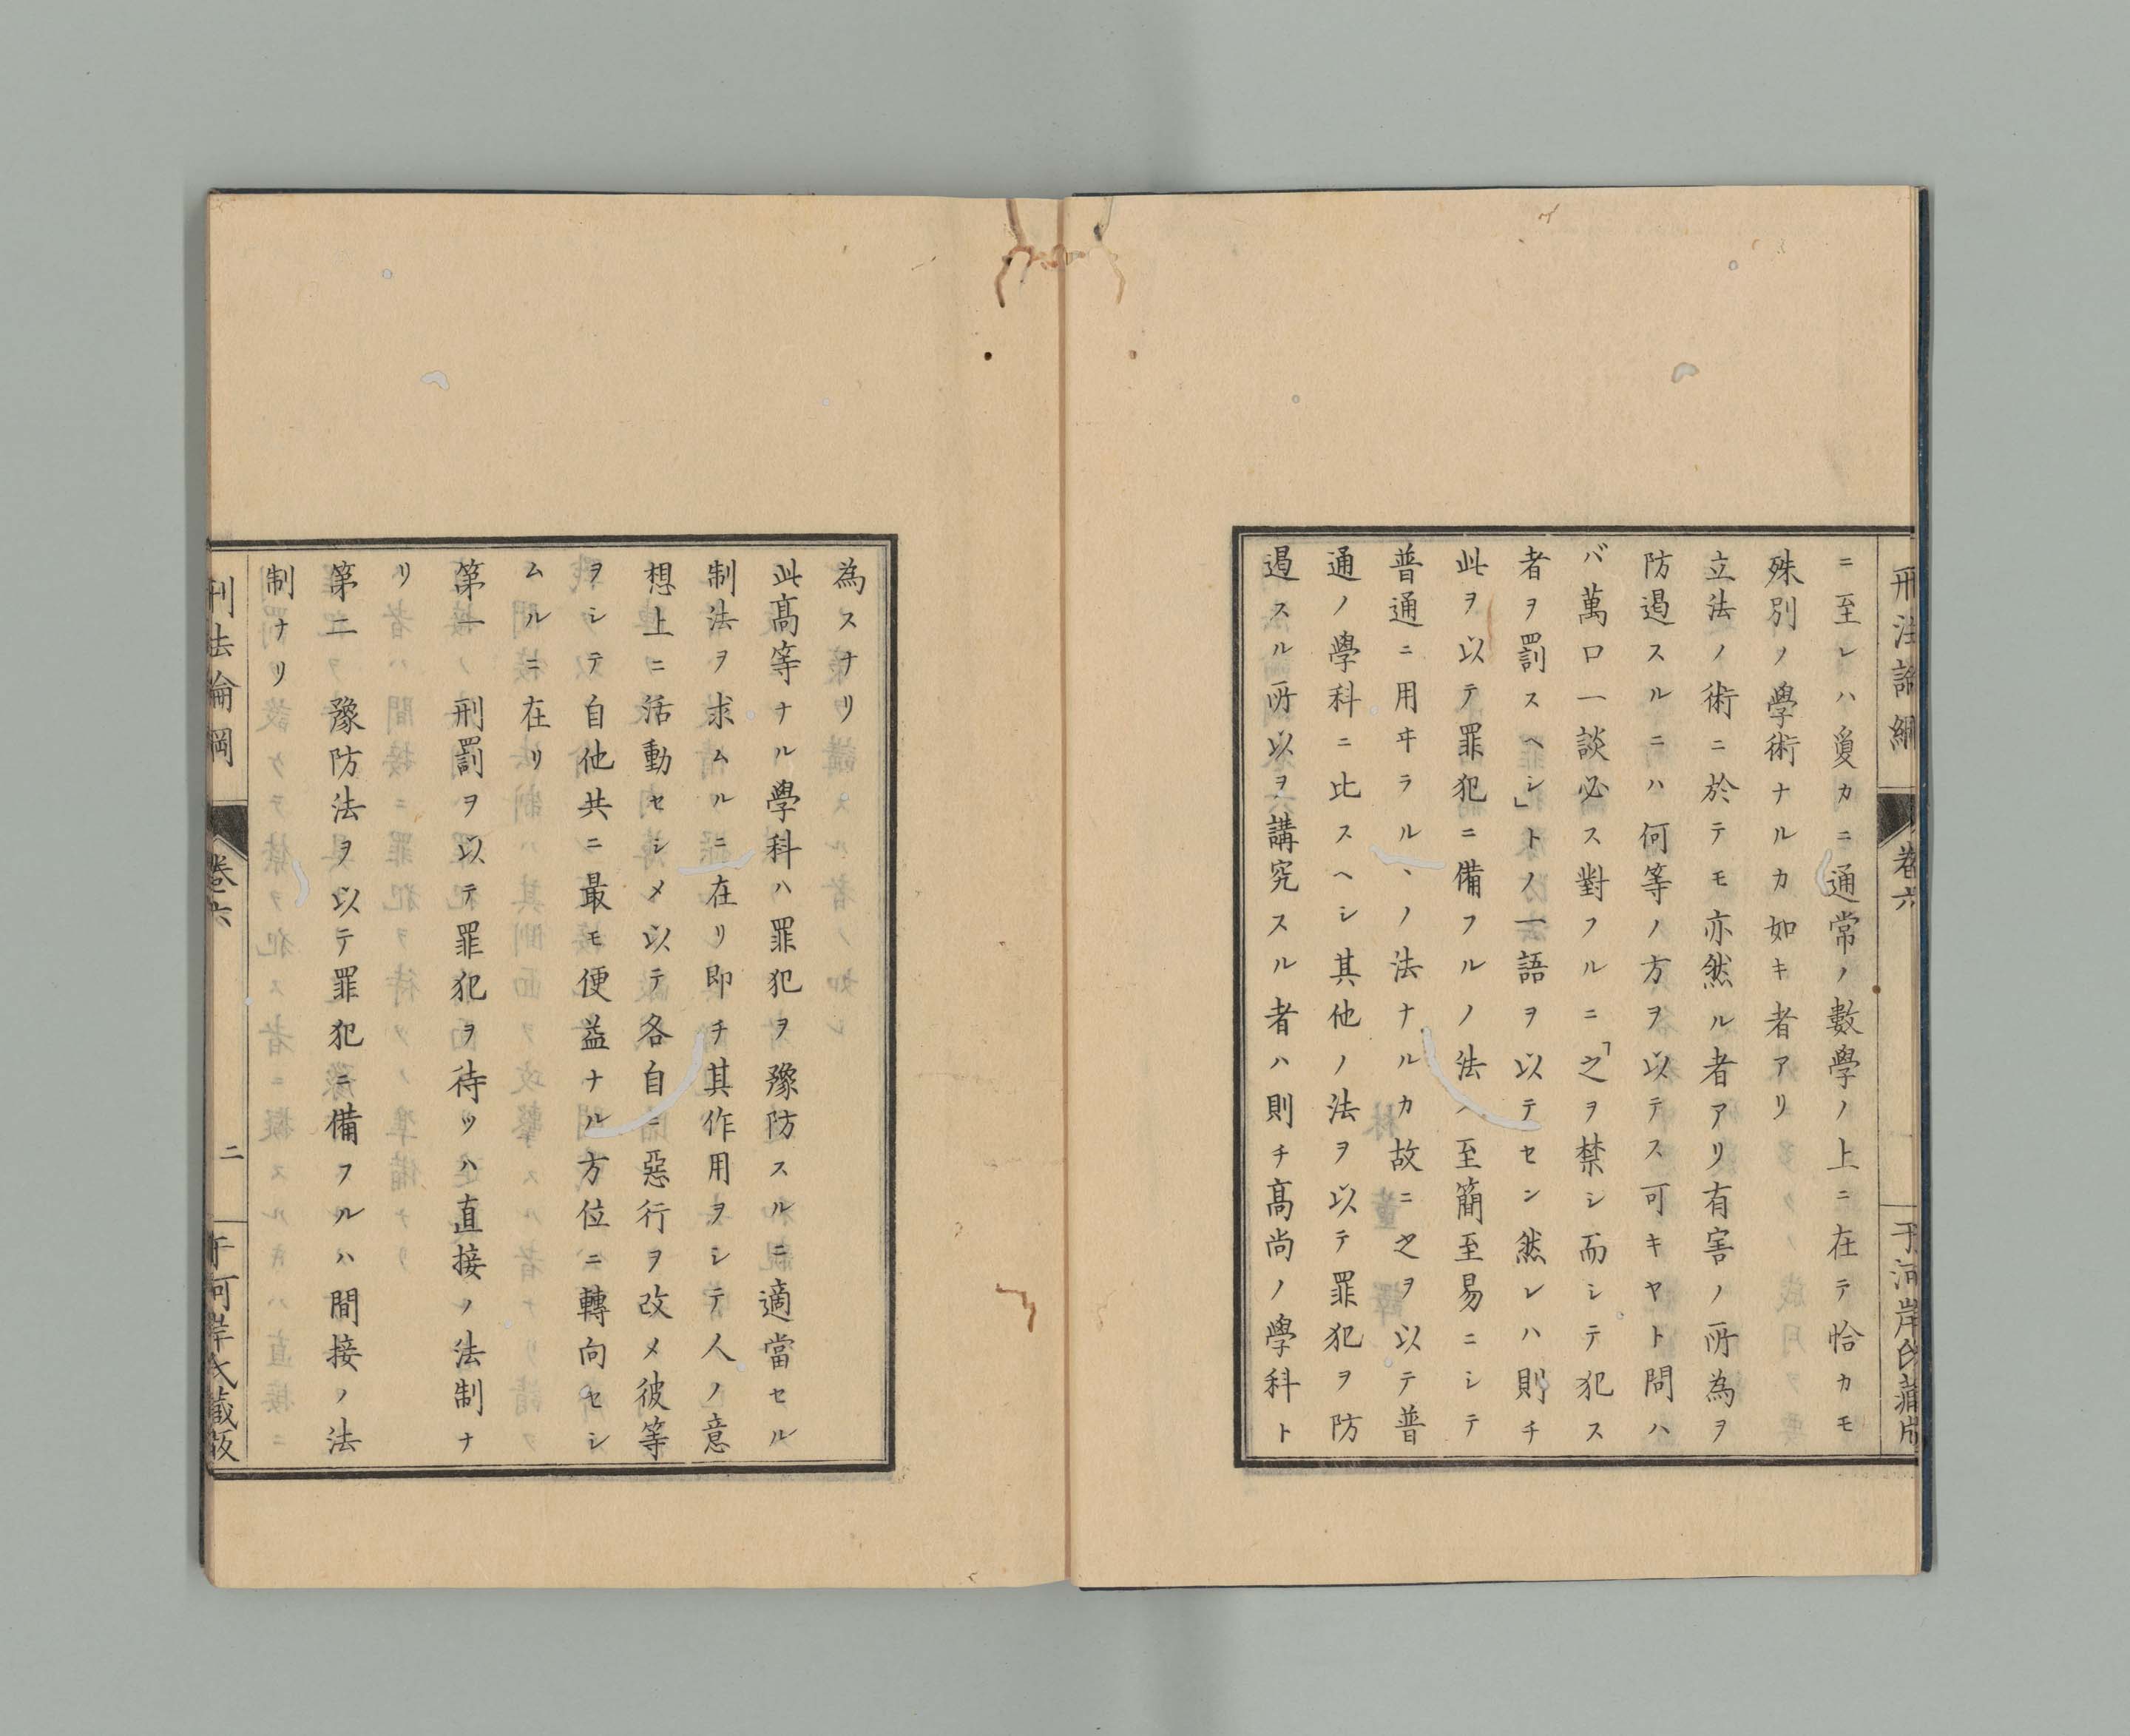 刑法論綱
卷六
于河岸氏藏版
ニ至レハ敻カニ通常ノ數學ノ上ニ在テ恰カモ
殊別ノ學術ナルカ如キ者アリ
立法ノ術ニ於テモ亦然ル者アリ有害ノ所為ヲ
防遏スルニハ何等ノ方ヲ以テス可キヤト問ハ
バ萬口一談必ス對フルニ「之ヲ禁シ而シテ犯ス
者ヲ罰スヘシ」トノ一語ヲ以テセン然レハ則チ
此ヲ以テ罪犯ニ備フルノ法ハ至簡至易ニシテ
普通ニ用ヰラルヽノ法ナルカ故ニ之ヲ以テ普
通ノ學科ニ比スヘシ其他ノ法ヲ以テ罪犯ヲ防
遏スル所以ヲ講究スル者ハ則チ高尚ノ學科ト
為スナリ
此高等ナル學科ハ罪犯ヲ豫防スルニ適當セル
制法ヲ求ムルニ在リ即チ其作用ヲシテ人ノ意
想上ニ活動セシメ以テ各自ニ惡行ヲ改メ彼等
ヲシテ自他共ニ最モ便益ナル方位ニ轉向セシ
ムルニ在リ
第一 刑罰ヲ以テ罪犯ヲ待ツハ直接ノ法制ナ
リ
第二 豫防法ヲ以テ罪犯ニ備フルハ間接ノ法
制ナリ
刑法論綱
卷六
二
于河岸氏藏版